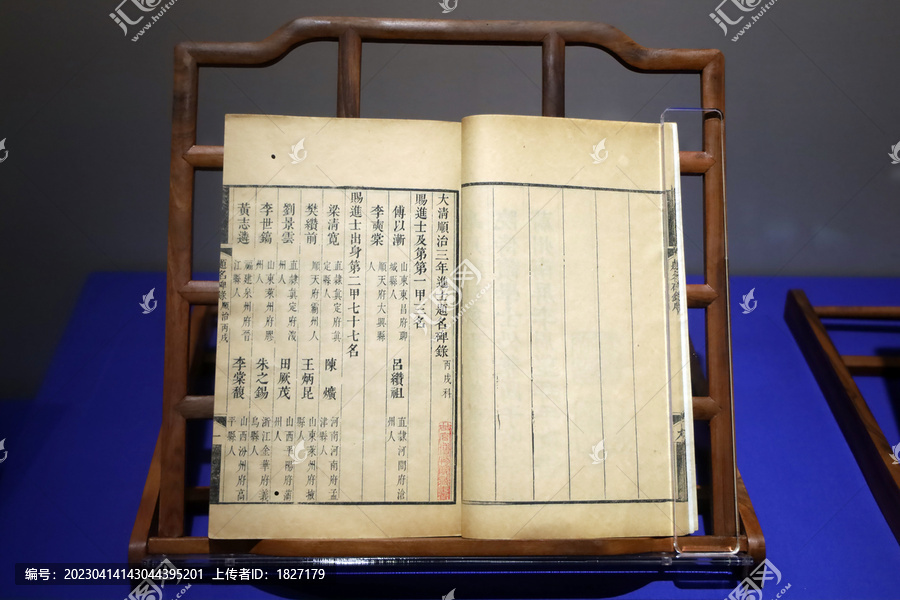 大清順治三年進士題名碑錄 丙戌科
賜進士及第第一甲三名
傅以漸 山東東昌府聊城縣人
呂纘祖 直隸河間府滄州人
李奭棠 順天府大興縣人
賜進士出身第二甲七十七名
梁清寬 直隸真定府真定縣人
陳爌 河南河南府孟津縣人
樊纘前 順天府霸州人
王炳昆 山東萊州府掖縣人
劉景雲 直隸真定府冀州人
田厥茂 山西平陽府蒲州人
李世鎬 山東萊州府膠州人
朱之錫 浙江金華府義烏縣人
黃志遴 福建泉州府晉江縣人
李棠馥 山西汾州府高平縣人
題名碑錄 順治 丙戌
一
編号：20230414143044395201 上传者ID：1827179